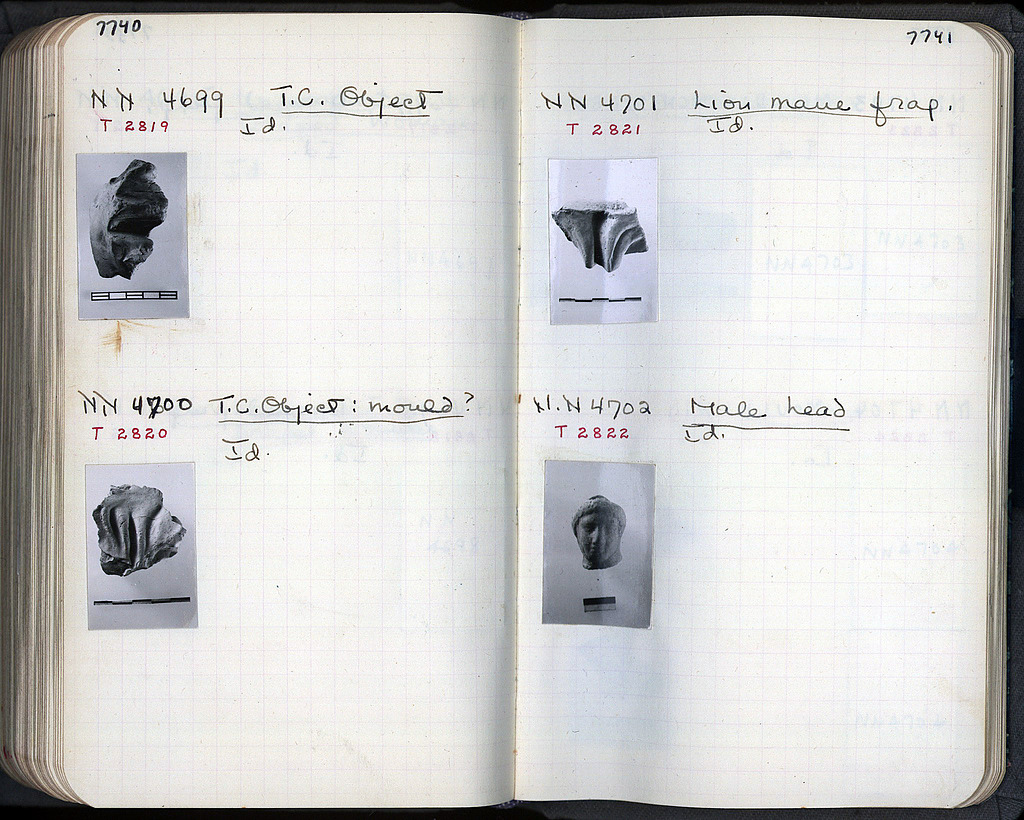 7740
NN 4699 T.C. Object
T 2819 Id.
NN 4700 T.C. Object : mould?
T 2820
Id.
7741
NN 4701 Lion mane frag.
T 2821 Id.
N.N 4702 Male head
T 2822 Id.